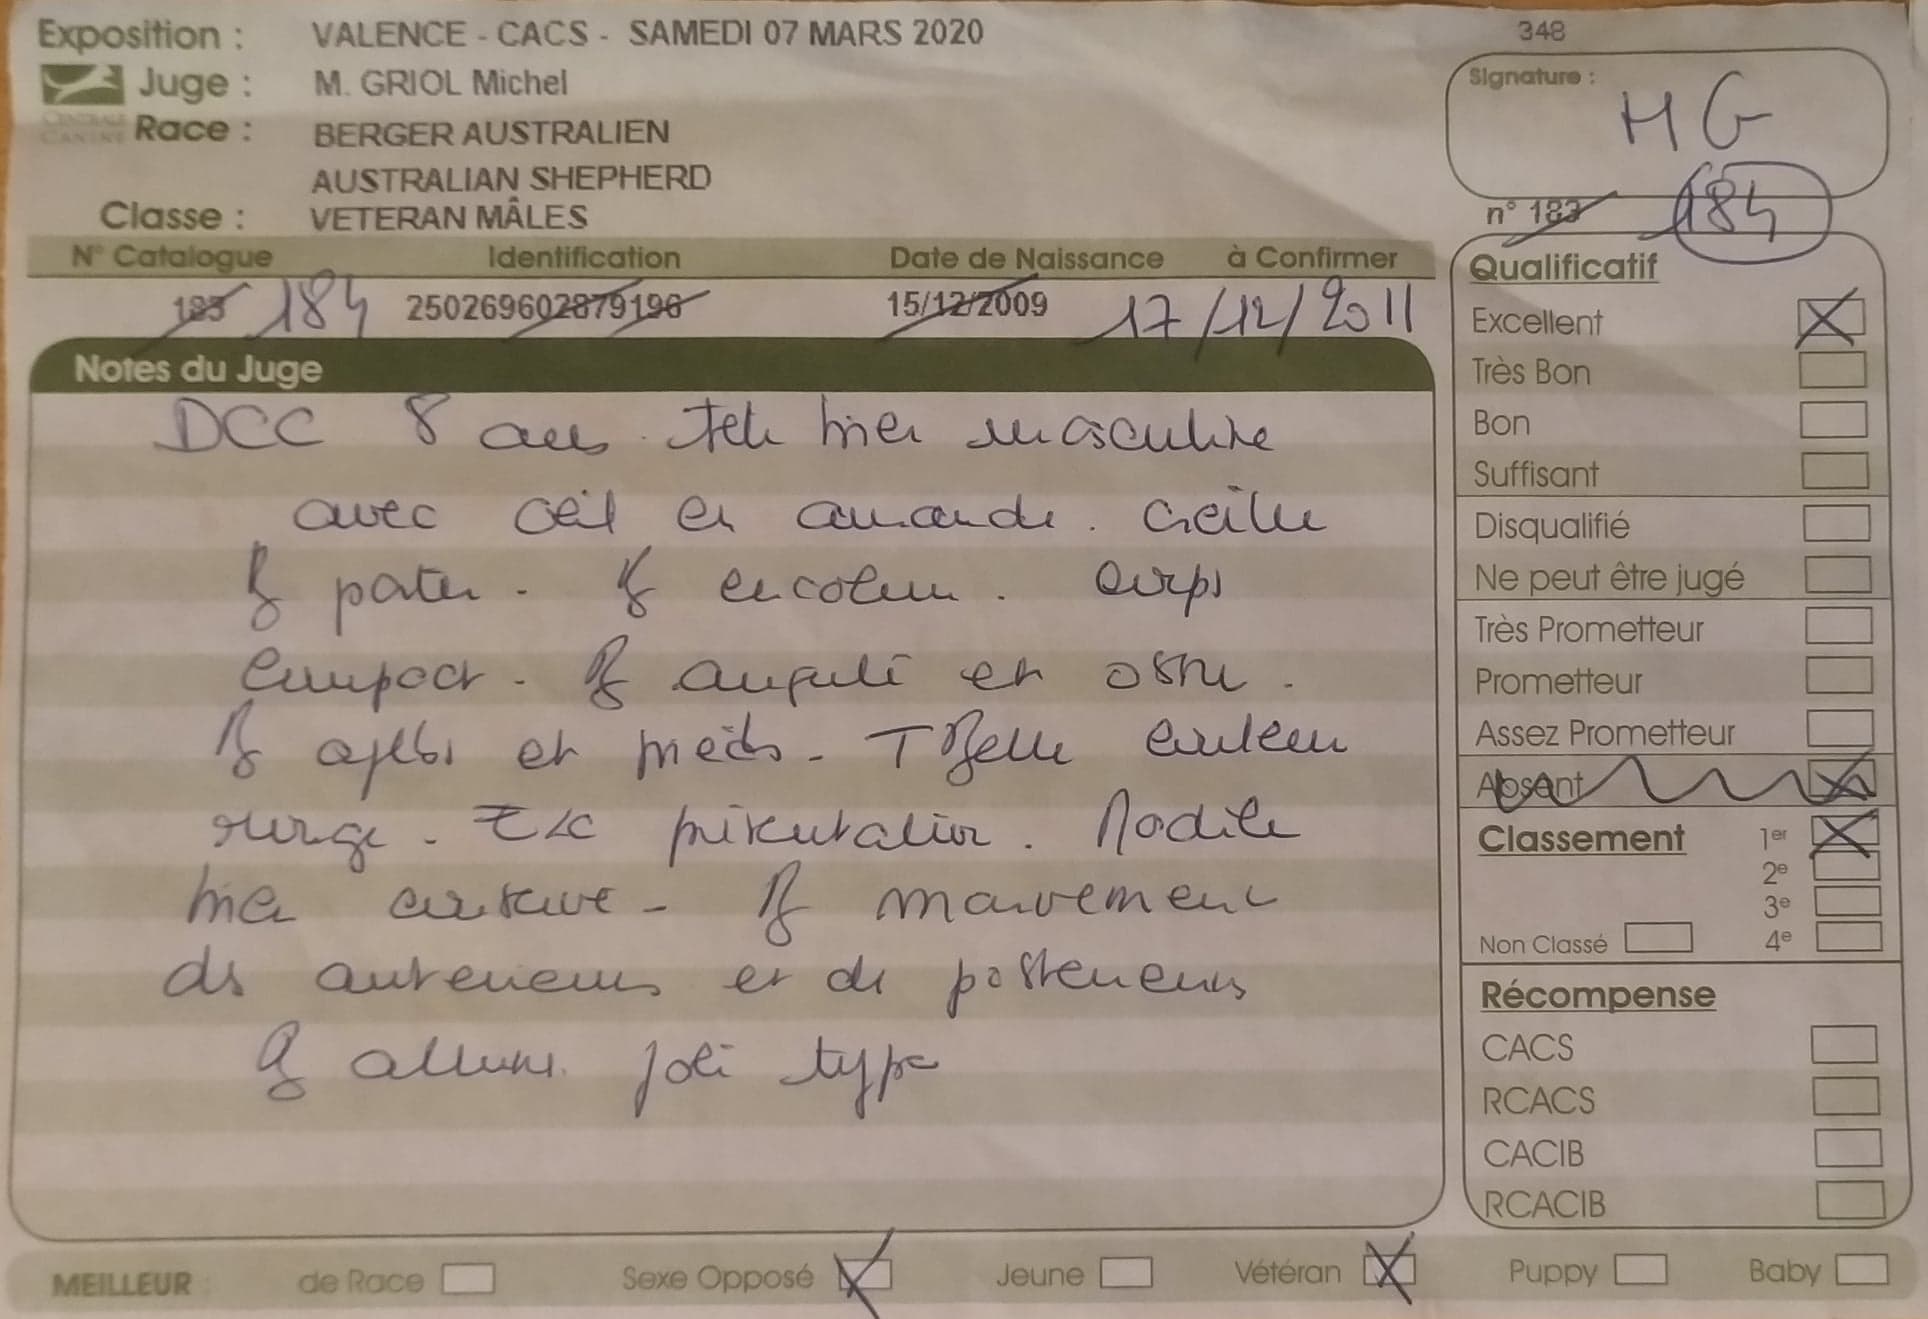 Exposition : VALENCE - CACS - SAMEDI 07 MARS 2020
Juge : M. GRIOL Michel
CENTRALE CANINE
Race : BERGER AUSTRALIEN
AUSTRALIAN SHEPHERD
Classe : VETERAN MÂLES
N° Catalogue Identification Date de Naissance à Confirmer
183 184 250269602879196 15/12/2009 17/12/2011
Notes du Juge
DCC 8 ans. Tete bien masculine
avec œil en amande. Oreille
B portee. B encolure. Corps
Compact. B angulé et ossu.
B aplbs et pieds. T Belle couleur
rouge. Exc présentation. Modèle
bien conservé. B mouvement
ds anterieurs et de posterieurs
B allure. Joli type
348
Signature :
MG
n° 183 184
Qualificatif
Excellent
Très Bon
Bon
Suffisant
Disqualifié
Ne peut être jugé
Très Prometteur
Prometteur
Assez Prometteur
Absent
Classement 1er
2e
3e
Non Classé 4e
Récompense
CACS
RCACS
CACIB
RCACIB
MEILLEUR de Race Sexe Opposé Jeune Vétéran Puppy Baby